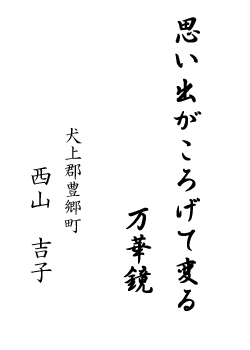 思い出がころげて変る
万華鏡
犬上郡豊郷町
西山　吉子